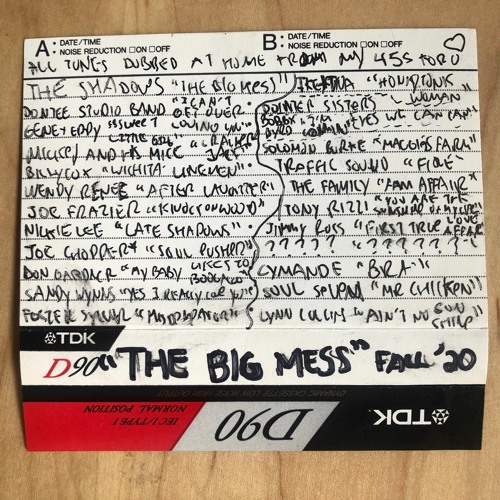 A: DATE/TIME
NOISE REDUCTION ☐ON ☐OFF
B: DATE/TIME
NOISE REDUCTION ☐ON ☐OFF
ALL TUNES DUBBED AT HOME FROM MY 45S FOR U ♡
THE SHADOWS "THE BIG MESS"
"I CAN'T
STUDIO BAND GET OVER
LOVING YOU"
MICKEY AND HIS MICE "CRACKER JACK"
BILLY COX "WICHITA LINEMEN"
WENDY RENEE "AFTER LAUGHTER"
JOE FRAZIER "KNOCK ON WOOD"
NICKIE LEE "LATE SHADOWS"
JOE CHOPPER "SOUL PUSHER"
DON GARDNER "MY BABY LIKES TO BOOGALOO"
SANDY WYNNS "YES I REALLY LOVE YOU"
FOSTER SYLVERS "MISDEMEANOR"
"HONKY TONK WOMAN"
POINTER SISTERS "YES WE CAN CAN"
SOLOMON BURKE "MAGGIES FARM"
TRAFFIC SOUND "FIRE"
THE FAMILY "FAM AFFAIR"
TONY RIZZI "YOU ARE THE SUNSHINE OF MY LIFE"
JIMMY ROSS "FIRST TRUE LOVE AFFAIR"
? ? ? ? ? "? ? ? ? ? ?"
CYMANDE "BRA"
SOUL SEVEN "MR CHICKEN"
LYNN COLLINS "AIN'T NO SUNSHINE"
TDK
D90 "THE BIG MESS" FALL '20
DYNAMIC CASSETTE LOW NOISE HIGH OUTPUT
IEC I/TYPE I
NORMAL POSITION
D90
TDK